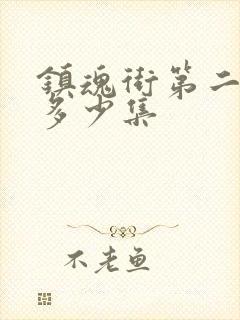 鎮魂街第二
多少集
不老鱼